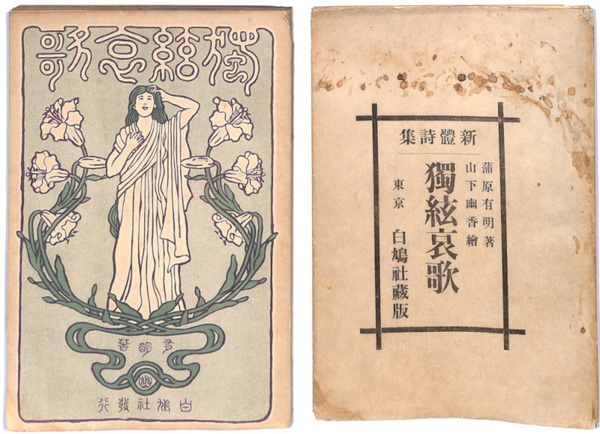 獨絃哀歌
有明著
白鳩社發行
新體詩集
蒲原有明著
山下幽香繪
獨絃哀歌
東京 白鳩社藏版